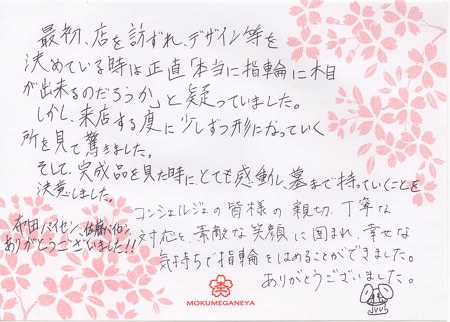 最初、店を訪ずれ、デザイン等を
決めている時は正直「本当に指輪に木目
が出来るのだろうか」と疑っていました。
しかし、来店する度に少しずつ形になっていく
所を見て驚きました。
そして、完成品を見た時に、とても感動し、墓まで持っていくことを
決意しました。
コンシェルジェの皆様の親切、丁寧な
対応と、素敵な笑顔に囲まれ、幸せな
気持ちで指輪をはめることができました。
ありがとうございました。
和田パイセン、佐藤パイセン、
ありがとうございました!!
MOKUMEGANEYA